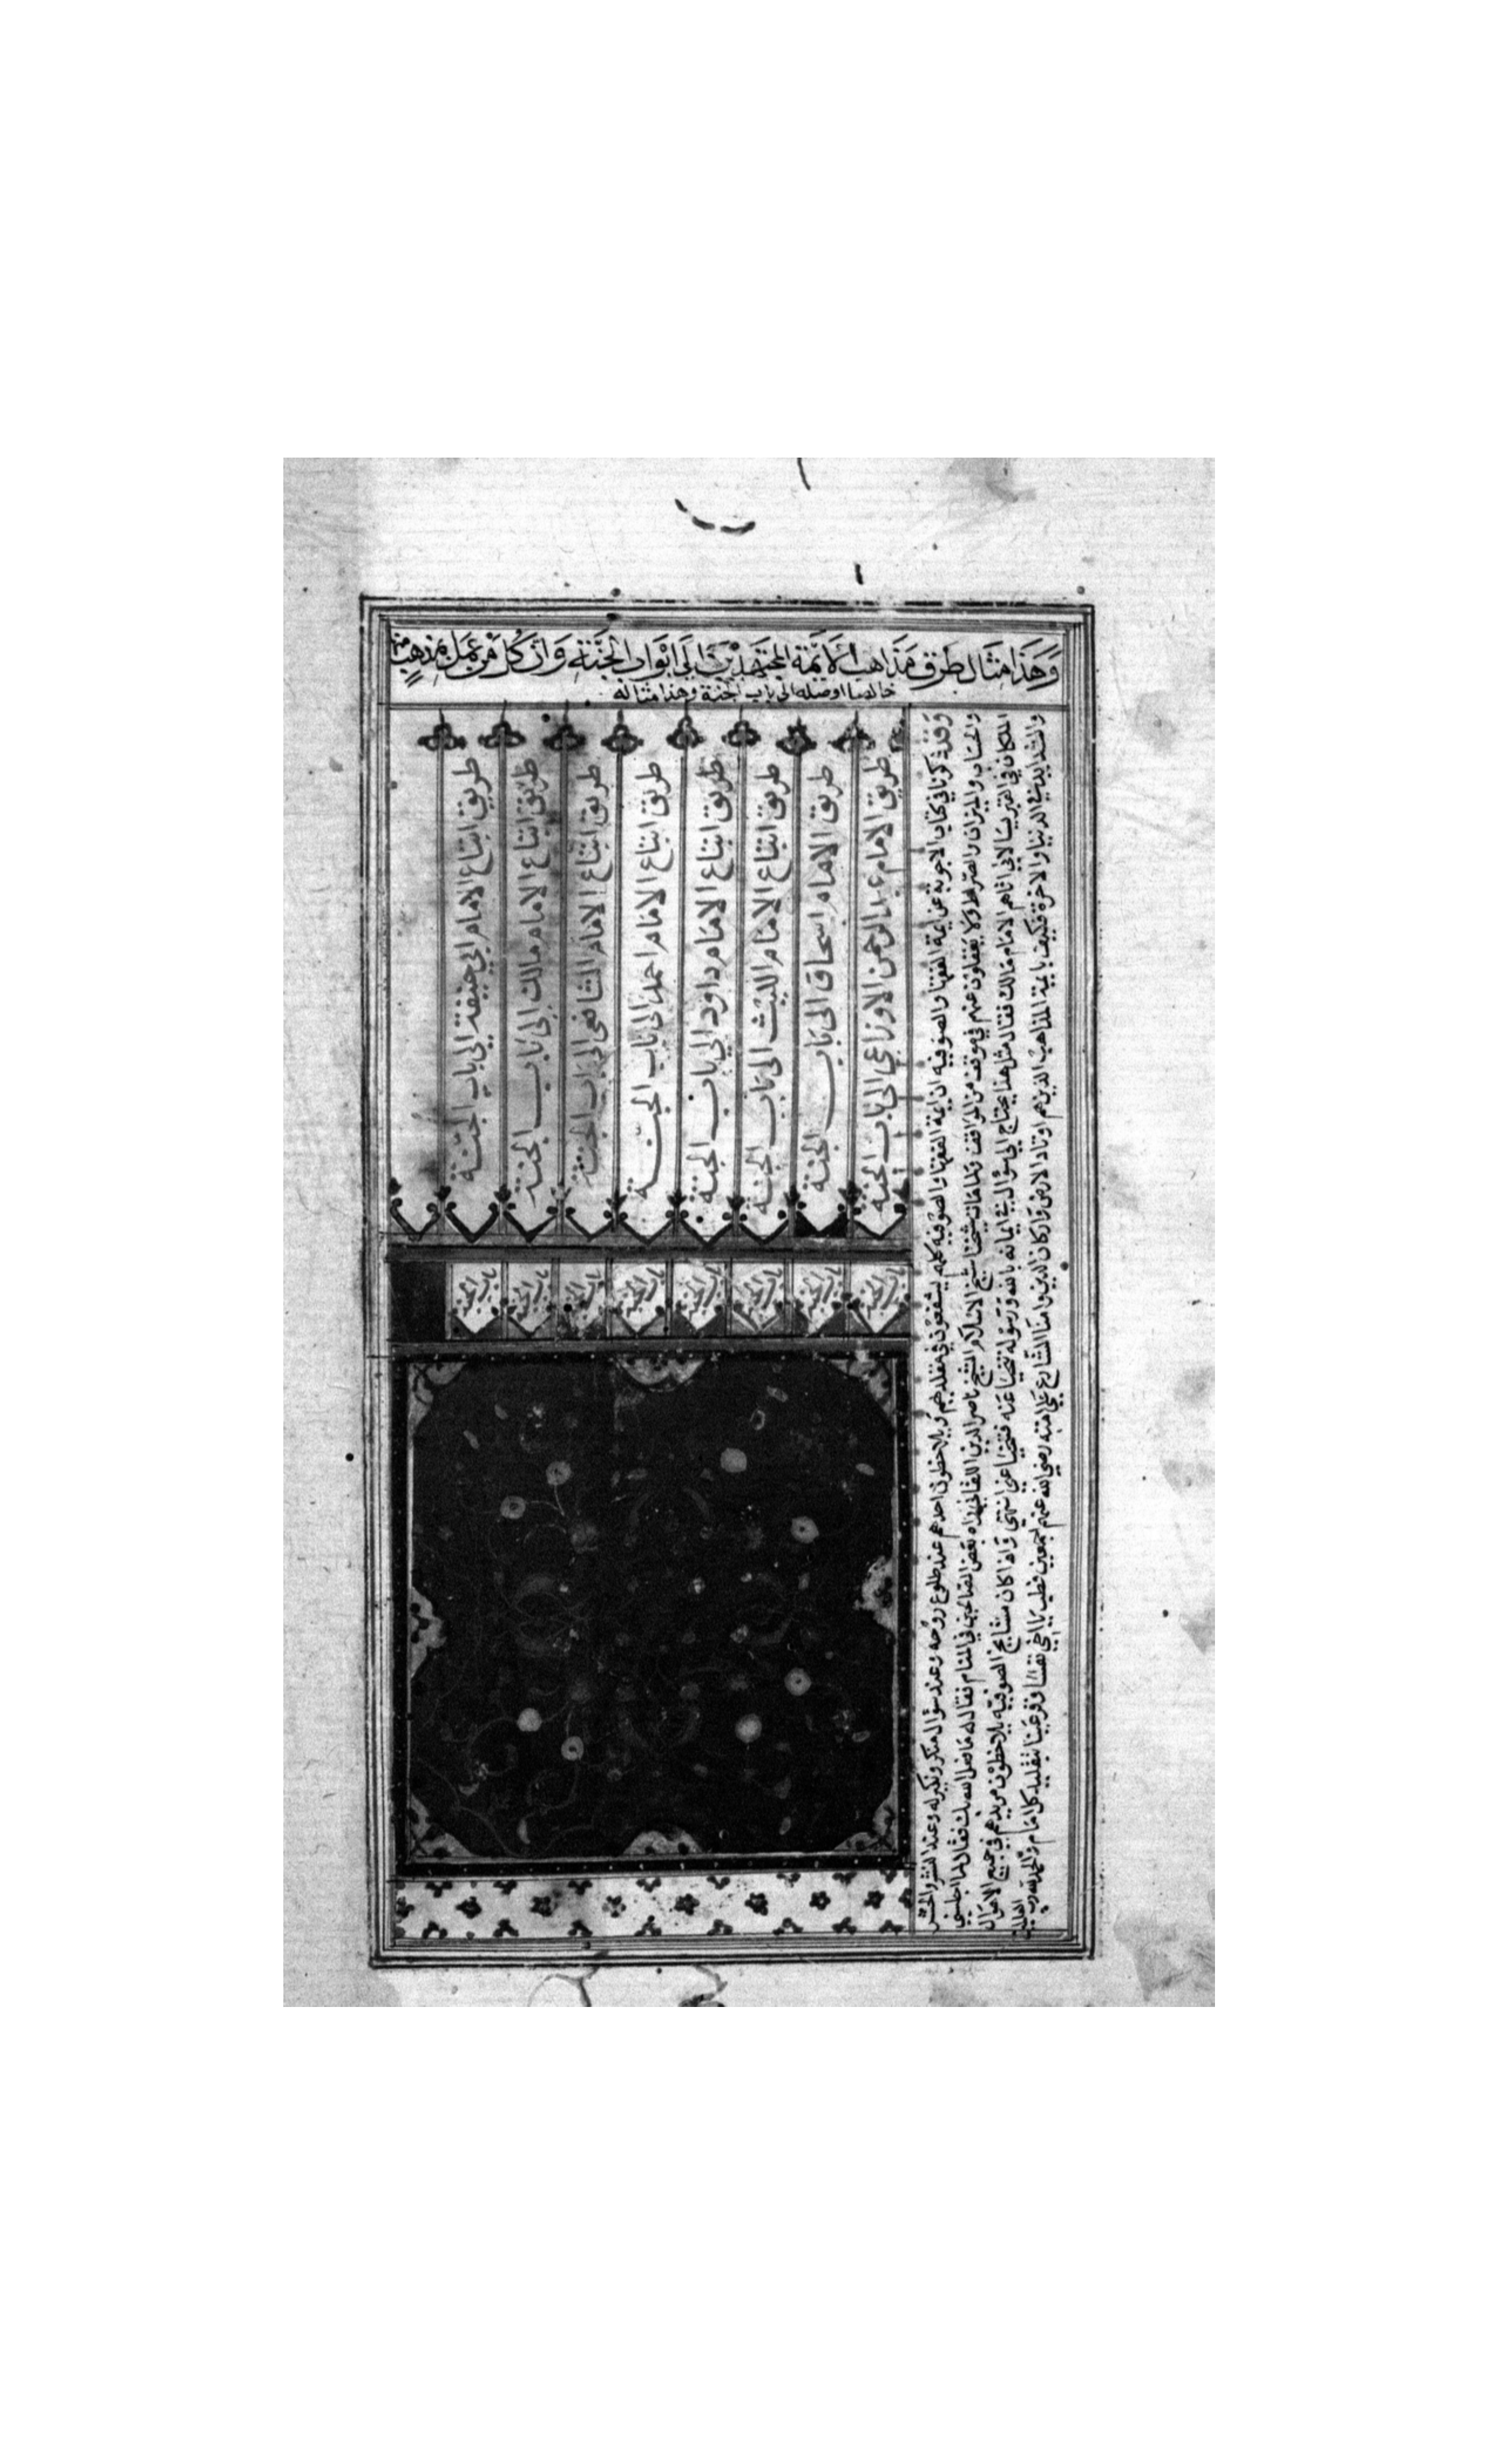 وَهَذَا مِثَال طُرق مَذَاهِب الأَيمّة المجتَهِدِيْنَ اِلَى ابْوَاب الجَنَّةِ وَانَّ كُل مَنْ عَمَل بمذهب منها
خالصا اوصله الى باب الجنة وهذا مثاله
طريق الامام عبد الرحمن الاوزاعي الى باب الجنة
طريق الامام اسحاق الى باب الجنة
طريق اتباع الامام الليث الى باب الجنة
طريق اتباع الامام داود الي باب الجنة
طريق اتباع الامام احمد الى باب الجنة
طريق اتباع الامام الشافعي الى باب الجنة
طريق اتباع الامام مالك الى باب الجنة
طريق اتباع الامام ابي حنيفة الى باب الجنة
باب الجنة
باب الجنة
باب الجنة
باب الجنة
باب الجنة
باب الجنة
باب الجنة
باب الجنة
وقد ذكرنا في كتاب الاجوبة عن ايمة الفقها والصوفيه ان ايمة الفقها والصوفيه كلهم يشفعون في مقلديهم ويلاحظون احدهم عند طلوع روحه وعند سؤال منكر ونكير له وعند النشر والحشر
والحساب والميزان والصراط ولا يغفلون عنهم في موقف من المواقف ولما مات شيخنا شيخ الاسلام الشيخ ناصر الدين اللقاني راه بعض الصالحين في المنام فقال له ما فعل الله بك فقال لما اجلسني
الملكان في القبر ليسالاني اتاهم الامام مالك فقال مثل هذا يحتاج الى سؤال في ايمانه بالله ورسوله تنحيا عنه فتنحيا عني انتهى واذا كان مشايخ الصوفيه يلاحظون مريدهم في جميع الاهوال
والشدايد في الدنيا والاخرة فكيف بايمة المذاهب الذين هم اوتاد الارض واركان الدين وامنا الشارع على امته رضي الله عنهم اجمعين فطب يا اخي نفسا وقر عينا بتقليد كل امام والحمد لله رب
العالمين